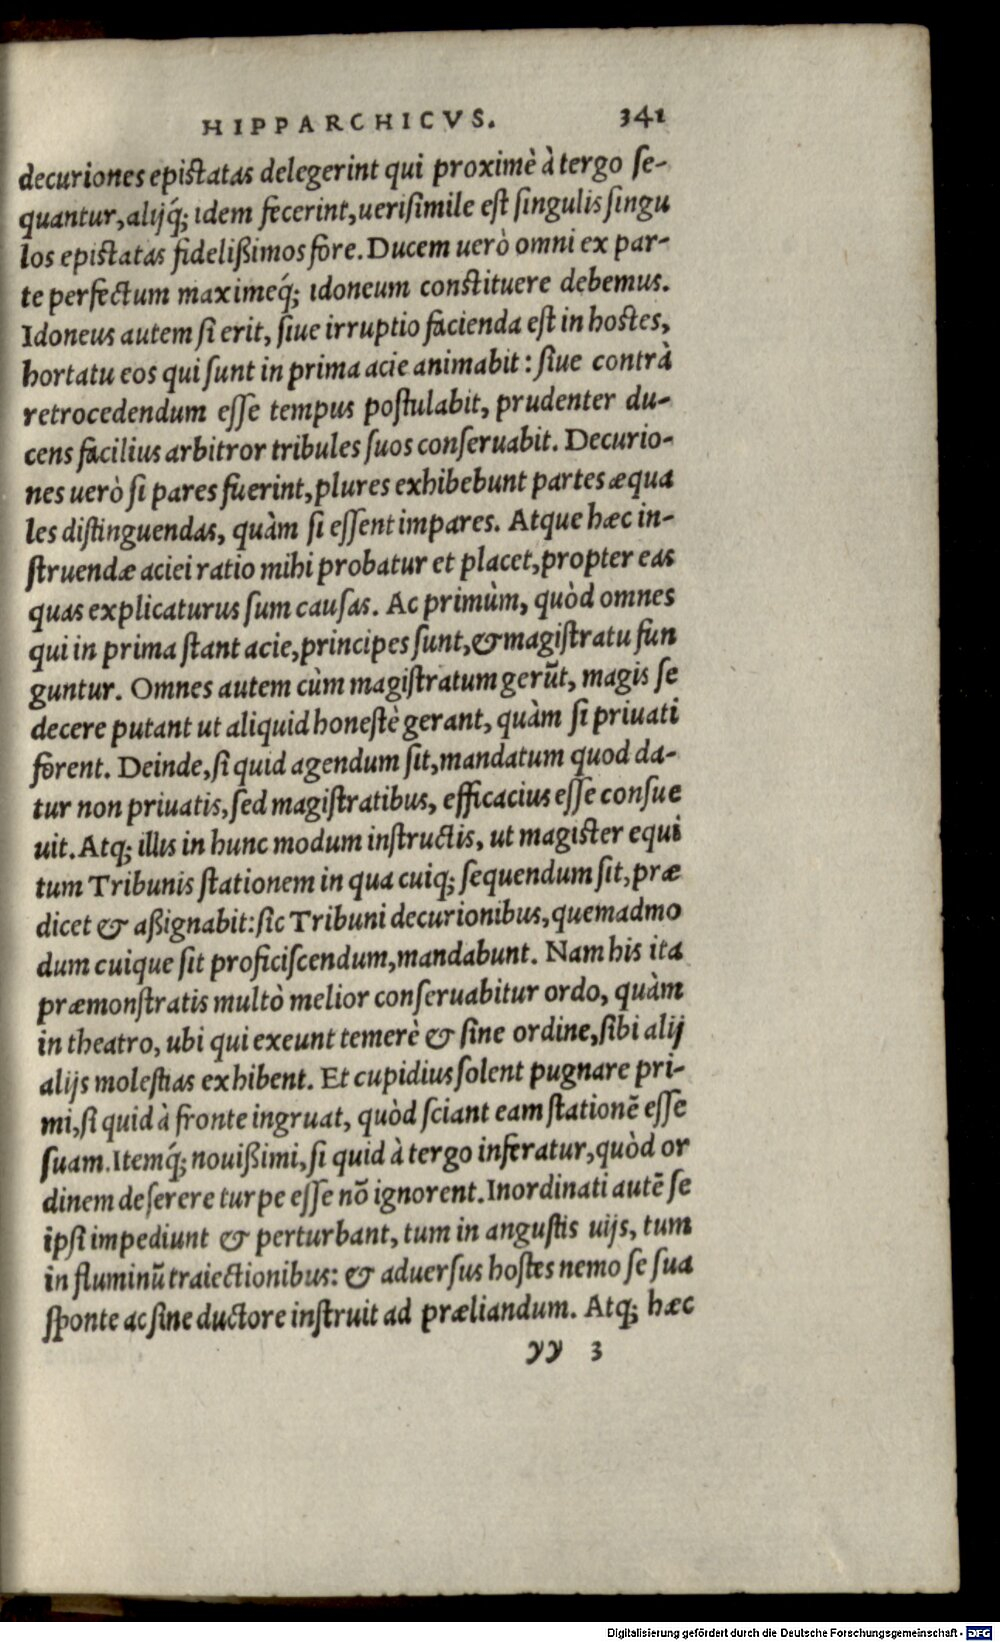 HIPPARCHICVS. 341
decuriones epistatas delegerint qui proximè à tergo se-
quantur, alijq́; idem fecerint, uerisimile est singulis singu
los epistatas fidelißimos fore. Ducem uerò omni ex par-
te perfectum maximeq́; idoneum constituere debemus.
Idoneus autem si erit, siue irruptio facienda est in hostes,
hortatu eos qui sunt in prima acie animabit: siue contrà
retrocedendum esse tempus postulabit, prudenter du-
cens facilius arbitror tribules suos conseruabit. Decurio-
nes uerò si pares fuerint, plures exhibebunt partes æqua
les distinguendas, quàm si essent impares. Atque hæc in-
struendæ aciei ratio mihi probatur et placet, propter eas
quas explicaturus sum causas. Ac primùm, quòd omnes
qui in prima stant acie, principes sunt, & magistratu fun
guntur. Omnes autem cùm magistratum gerũt, magis se
decere putant ut aliquid honestè gerant, quàm si priuati
forent. Deinde, si quid agendum sit, mandatum quod da-
tur non priuatis, sed magistratibus, efficacius esse consue
uit. Atq; illis in hunc modum instructis, ut magister equi
tum Tribunis stationem in qua cuiq; sequendum sit, præ
dicet & aßignabit: sic Tribuni decurionibus, quemadmo
dum cuique sit proficiscendum, mandabunt. Nam his ita
præmonstratis multò melior conseruabitur ordo, quàm
in theatro, ubi qui exeunt temerè & sine ordine, sibi alij
alijs molestias exhibent. Et cupidius solent pugnare pri-
mi, si quid à fronte ingruat, quòd sciant eam stationẽ esse
suam. Itemq́; nouißimi, si quid à tergo inferatur, quòd or
dinem deserere turpe esse nõ ignorent. Inordinati autẽ se
ipsi impediunt & perturbant, tum in angustis uijs, tum
in fluminũ traiectionibus: & aduersus hostes nemo se sua
sponte ac sine ductore instruit ad præliandum. Atq; hæc
yy 3
Digitalisierung gefördert durch die Deutsche Forschungsgemeinschaft - DFG